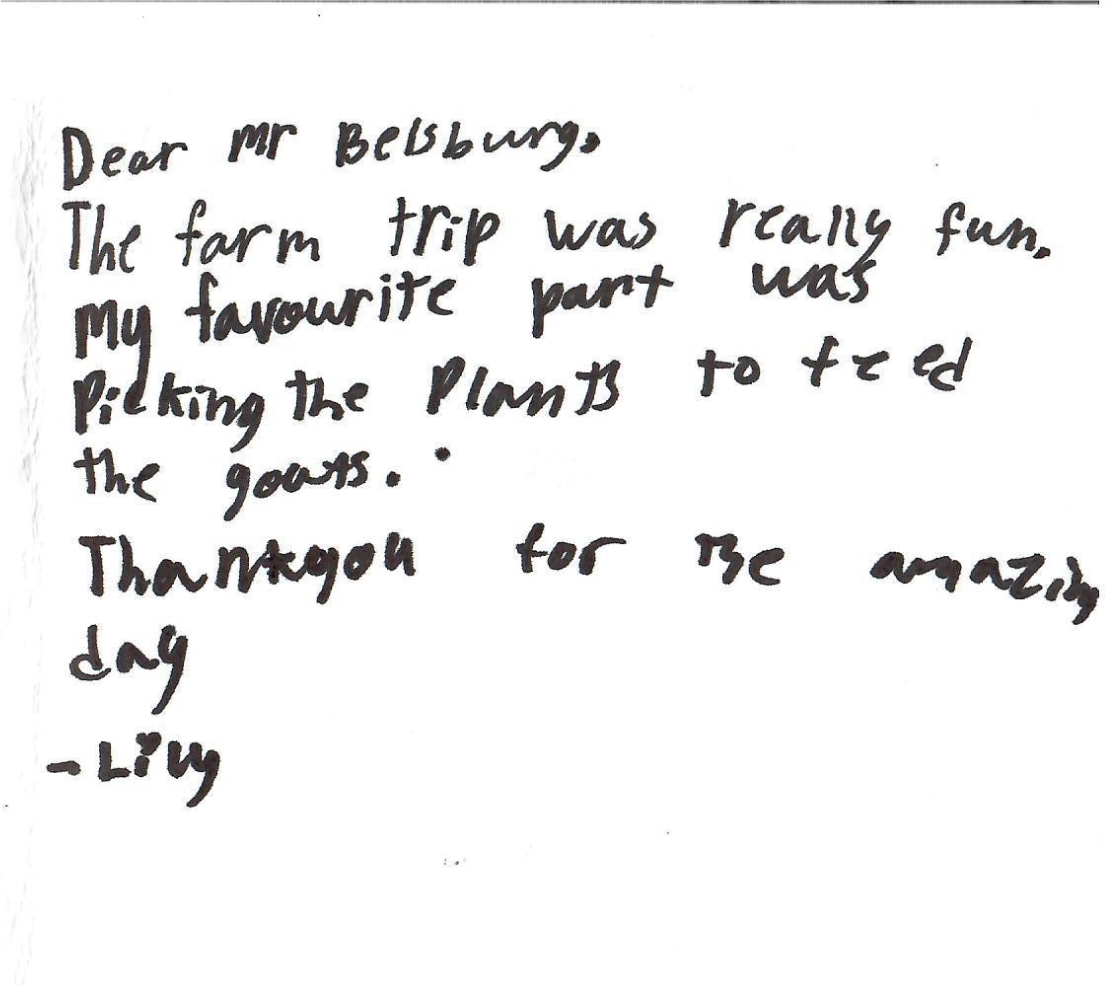 Dear Mr Belsburg,
The farm trip was really fun.
My favourite part was
Picking the Plants to feed
the goats.
Thankyou for the amazing
day
- Livy